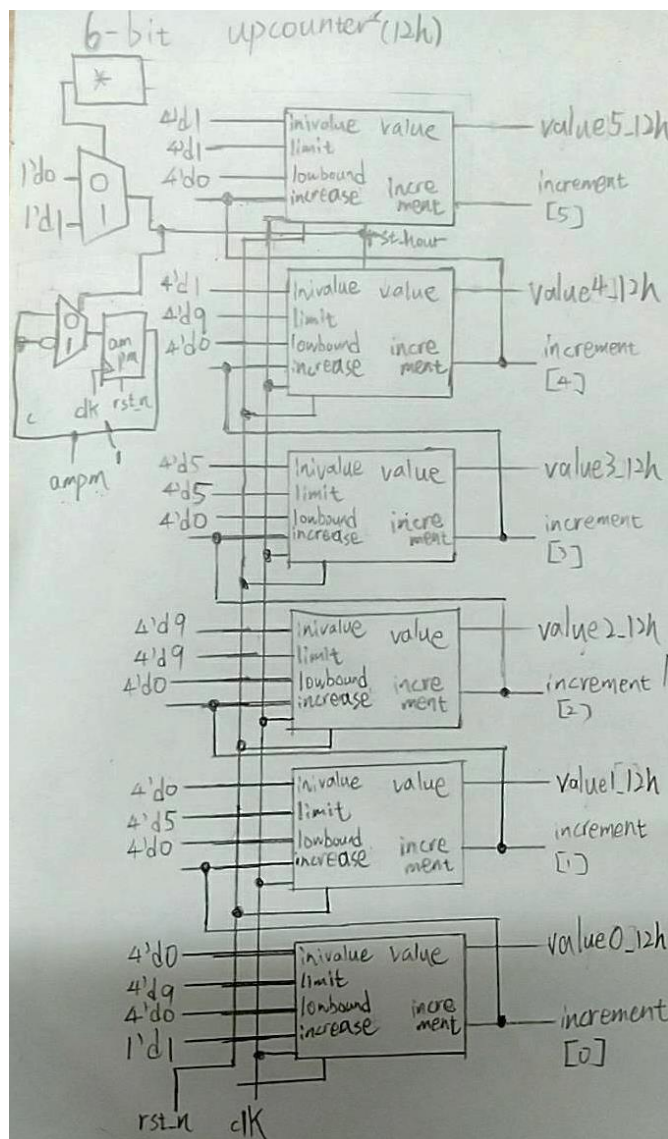 6-bit upcounter(12h)
*
1'd0
1'd1
0
1
4'd1
4'd1
4'd0
inivalue value
limit
lowbound
increase
Incre
ment
value5_12h
increment
[5]
rst_hour
0
1
am
pm
clk
rst_n
ampm
4'd1
4'd9
4'd0
inivalue value
limit
lowbound
increase
incre
ment
value4_12h
increment
[4]
4'd5
4'd5
4'd0
inivalue value
limit
lowbound
increase
incre
ment
value3_12h
increment
[3]
4'd9
4'd9
4'd0
inivalue value
limit
lowbound
increase
incre
ment
value2_12h
increment
[2]
4'd0
4'd5
4'd0
inivalue value
limit
lowbound
increase
incre
ment
value1_12h
increment
[1]
4'd0
4'd9
4'd0
1'd1
inivalue value
limit
lowbound
increase
incre
ment
value0_12h
increment
[0]
rst_n
clk